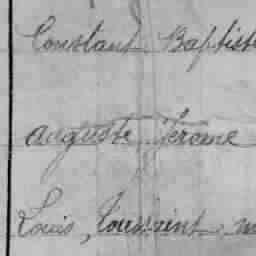 Constant Baptiste
Auguste Jérome
Louis, Toussaint